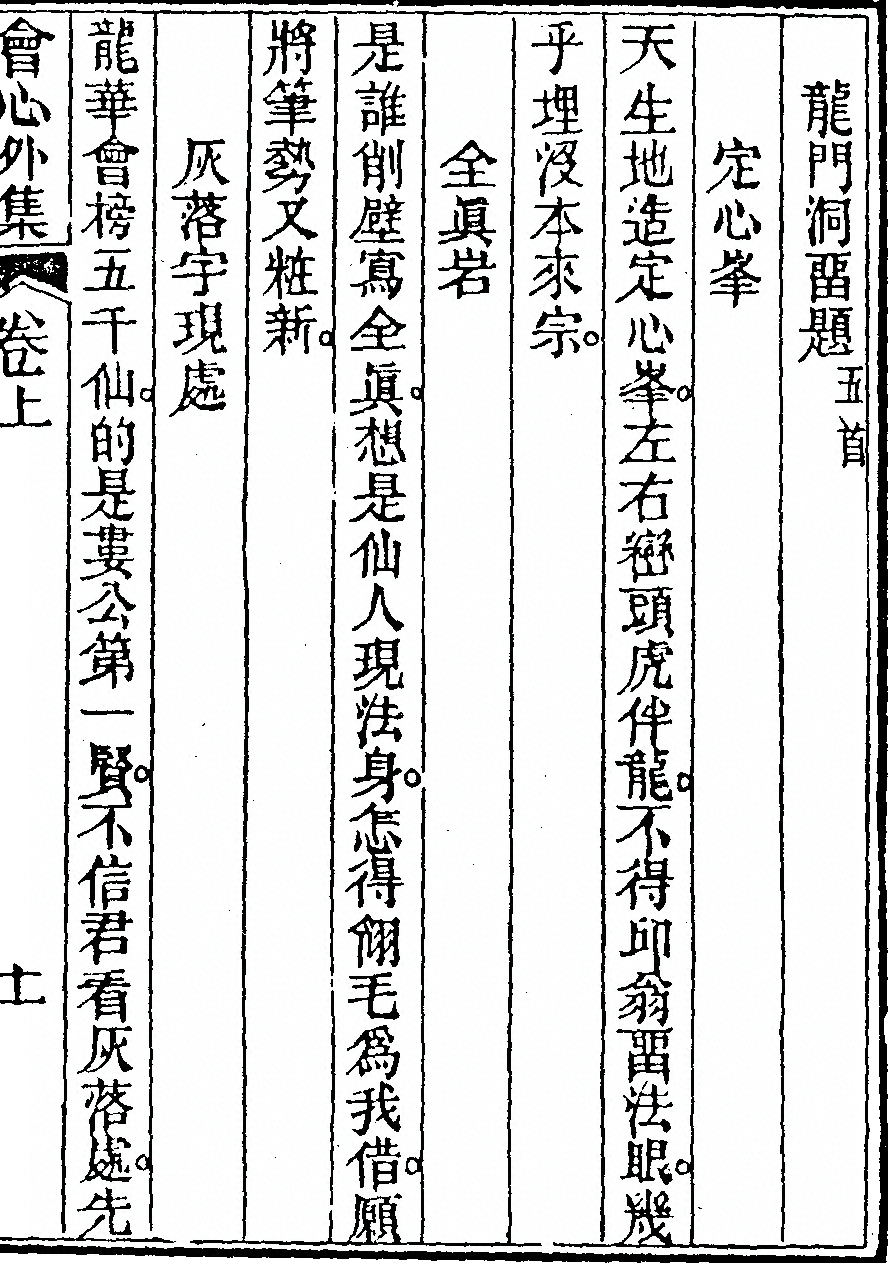 龍門洞畱題五首
定心峯
天生地造定心峯。左右巒頭虎伴龍。不得邱翁畱法眼。幾
乎埋沒本來宗。
全眞岩
是誰削壁寫全眞。想是仙人現法身。怎得翎毛爲我借。願
將筆勢又粧新。
灰落字現處
龍華會榜五千仙。的是婁公第一賢。不信君看灰落處。先
會心外集 卷上 十一